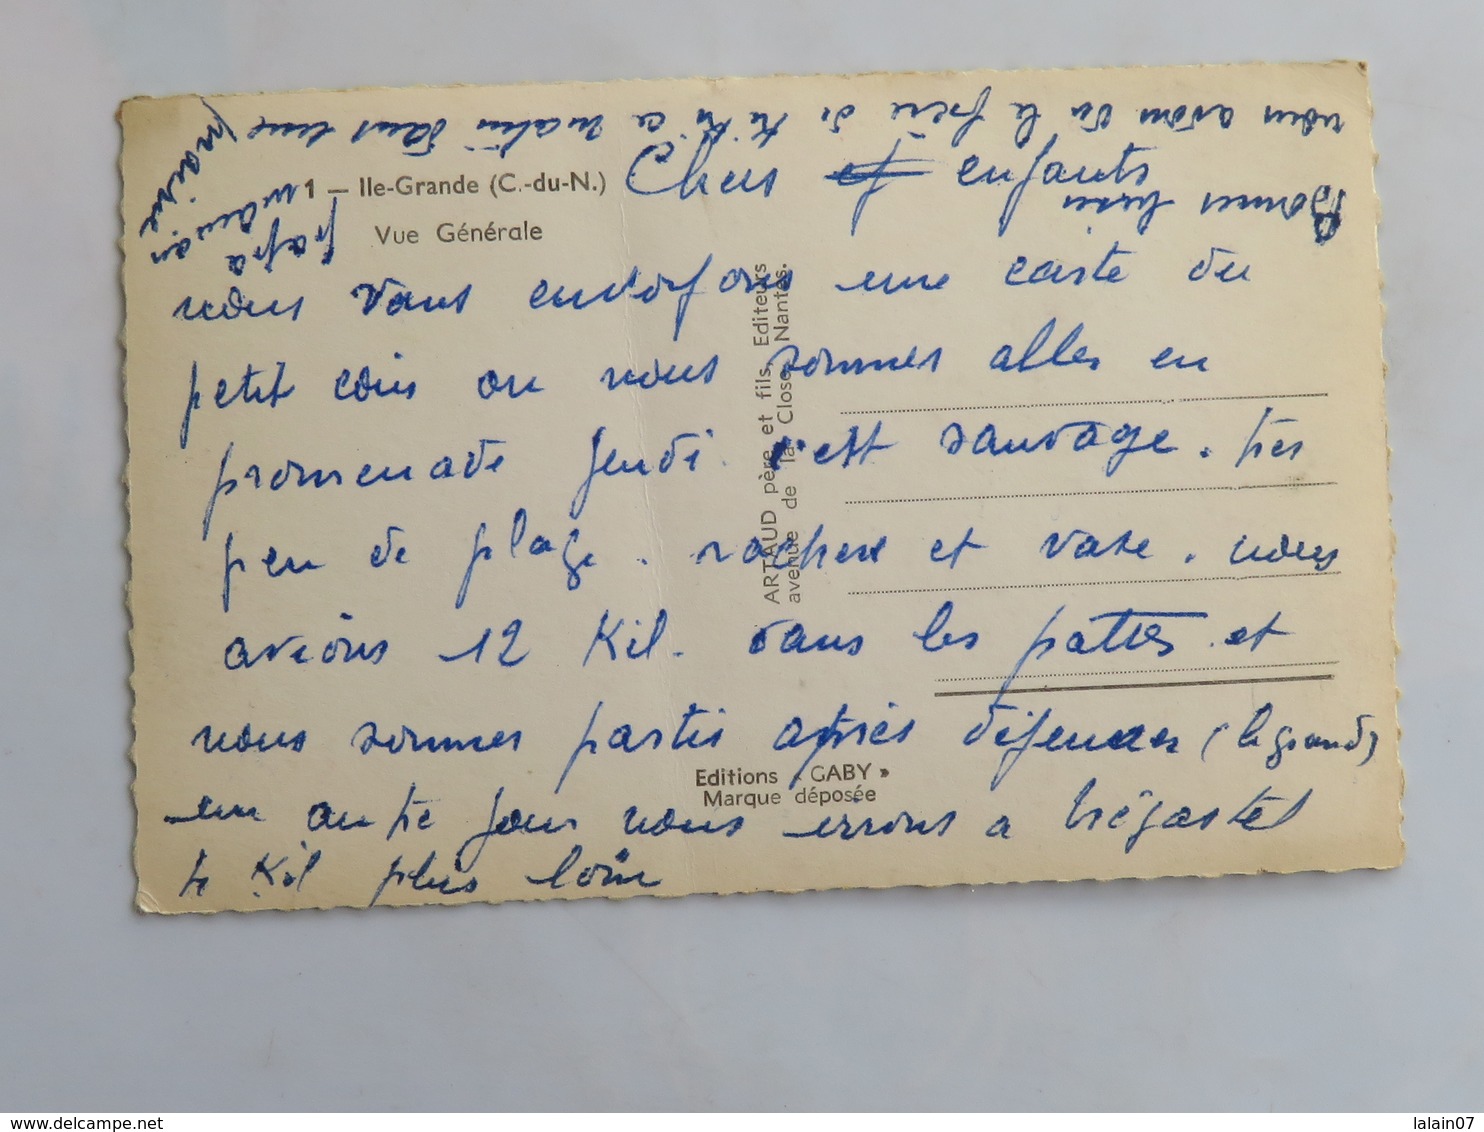 1 — Ile-Grande (C.-du-N.)
Vue Générale
Chers enfants
nous vous envoyons une carte du
petit coin ou nous sommes alles en
promenade jeudi. c'est sauvage. très
peu de plage. rocher et vase. nous
avions 12 Kil. dans les pattes et
nous sommes partis après déjeuner (le grand)
un autre jour nous irrons a trégastel
4 Kil plus loin
nous avons vu le frère de kiki ce matin dans une
prairie
Bonnes bises
papa
maman
ARTAUD père et fils, Editeurs
avenue de la Close, Nantes.
Editions « GABY »
Marque déposée
delcampe.net
lalain07